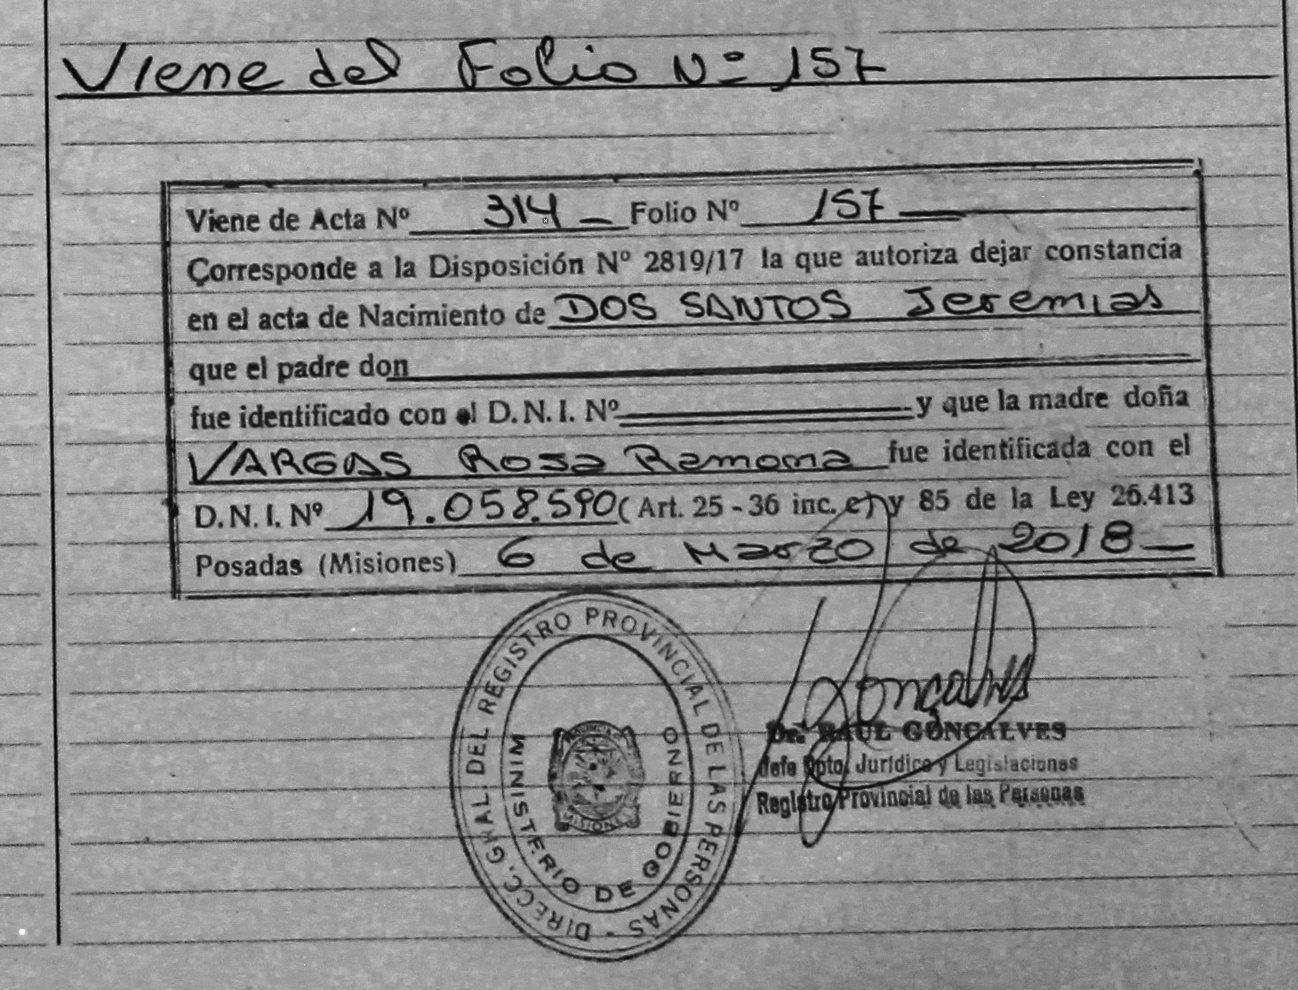 Viene del Folio Nº 157
Viene de Acta Nº 314 Folio Nº 157
Corresponde a la Disposición Nº 2819/17 la que autoriza dejar constancia
en el acta de Nacimiento de DOS SANTOS Jeremias
que el padre don
fue identificado con el D.N.I. Nº y que la madre doña
VARGAS Rosa Ramona fue identificada con el
D.N.I. Nº 19.058.590 (Art. 25 - 36 inc. e) y 85 de la Ley 26.413
Posadas (Misiones) 6 de Marzo de 2018
DIRECC. GRAL. DEL REGISTRO PROVINCIAL DE LAS PERSONAS -
MINISTERIO DE GOBIERNO
MISIONES
Goncalves
Dr. RAUL GONCALVES
Jefe Dpto. Jurídico y Legislaciones
Registro Provincial de las Personas